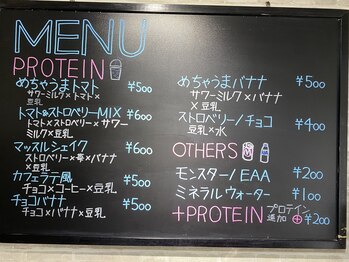 MENU
PROTEIN
めちゃうまトマト ¥500
サワーミルク×トマト×
豆乳
トマト&ストロベリーMIX ¥600
トマト×ストロベリー×サワー
ミルク×豆乳
マッスルシェイク ¥600
ストロベリー×苺×バナナ
×豆乳
カフェラテ風 ¥500
チョコ×コーヒー×豆乳
チョコバナナ ¥500
チョコ×バナナ×豆乳
めちゃうまバナナ ¥500
サワーミルク×バナナ
×豆乳
ストロベリー/チョコ ¥400
豆乳×水
OTHERS
モンスター/EAA ¥200
ミネラルウォーター ¥100
+PROTEIN プロテイン
追加 +¥200